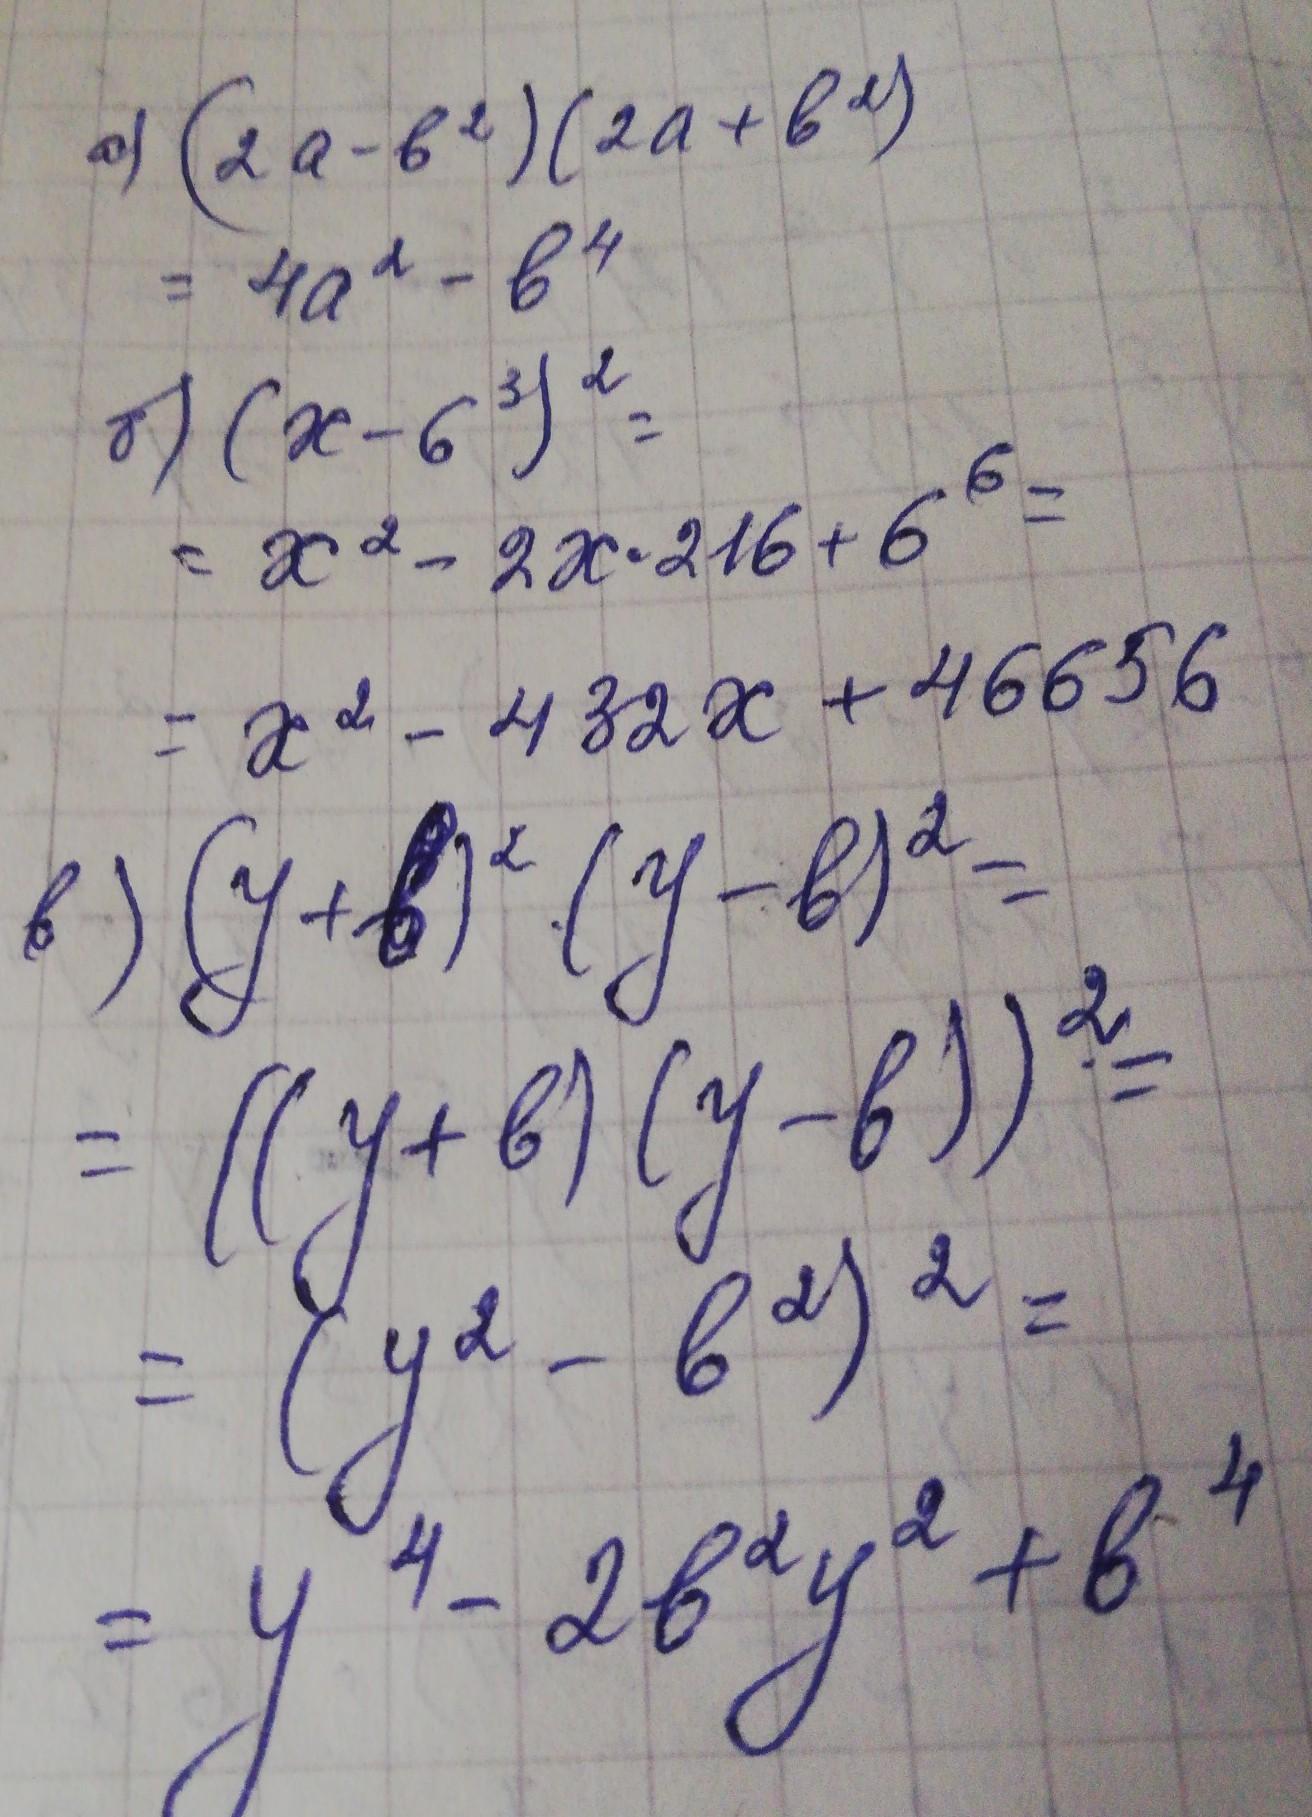 а) (2a - b²)(2a + b²)
= 4a² - b⁴
б) (x - 6³)² =
= x² - 2x · 216 + 6⁶ =
= x² - 432x + 46656
в) (y + b)² · (y - b)² =
= ((y + b)(y - b))² =
= (y² - b²)² =
= y⁴ - 2b²y² + b⁴